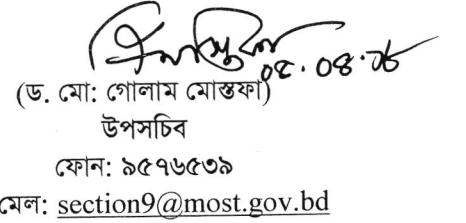 (ড. মো: গোলাম মোস্তফা)
উপসচিব
ফোন: ৯৫৭৬৫৩৯
মেল: section9@most.gov.bd